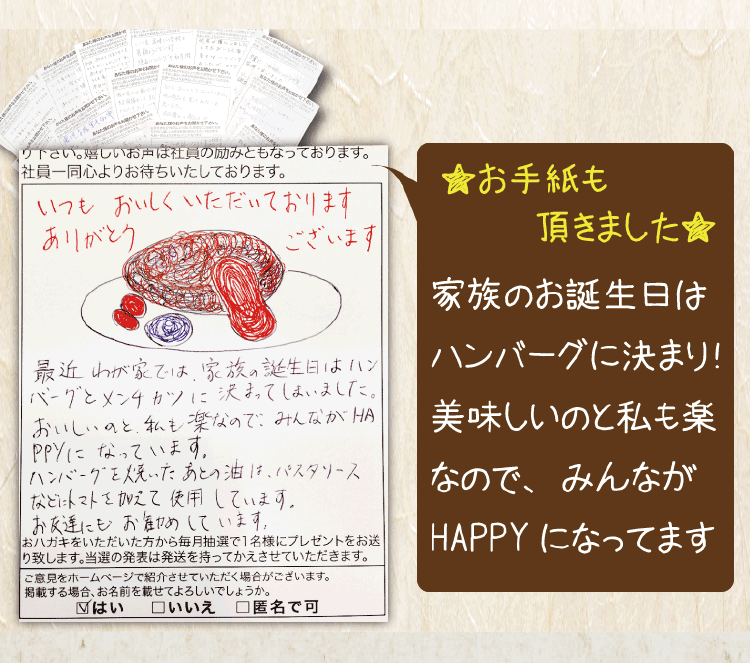 り下さい。嬉しいお声は社員の励みともなっております。
社員一同心よりお待ちいたしております。
いつも おいしくいただいております
ありがとう ございます
最近 わが家では、家族の誕生日はハン
バーグとメンチカツに 決まってしまいました。
おいしいのと、私も楽なので、みんながHA
PPYに なっています。
ハンバーグを焼いたあとの油は、パスタソース
などにトマトを加えて使用しています。
お友達にも お勧めしています。
おハガキをいただいた方から毎月抽選で1名様にプレゼントをお送
り致します。当選の発表は発送を持ってかえさせていただきます。
ご意見をホームページで紹介させていただく場合がございます。
掲載する場合、お名前を載せてよろしいでしょうか。
☑はい □いいえ □匿名で可
★お手紙も
頂きました★
家族のお誕生日は
ハンバーグに決まり!
美味しいのと私も楽
なので、みんなが
HAPPYになってます